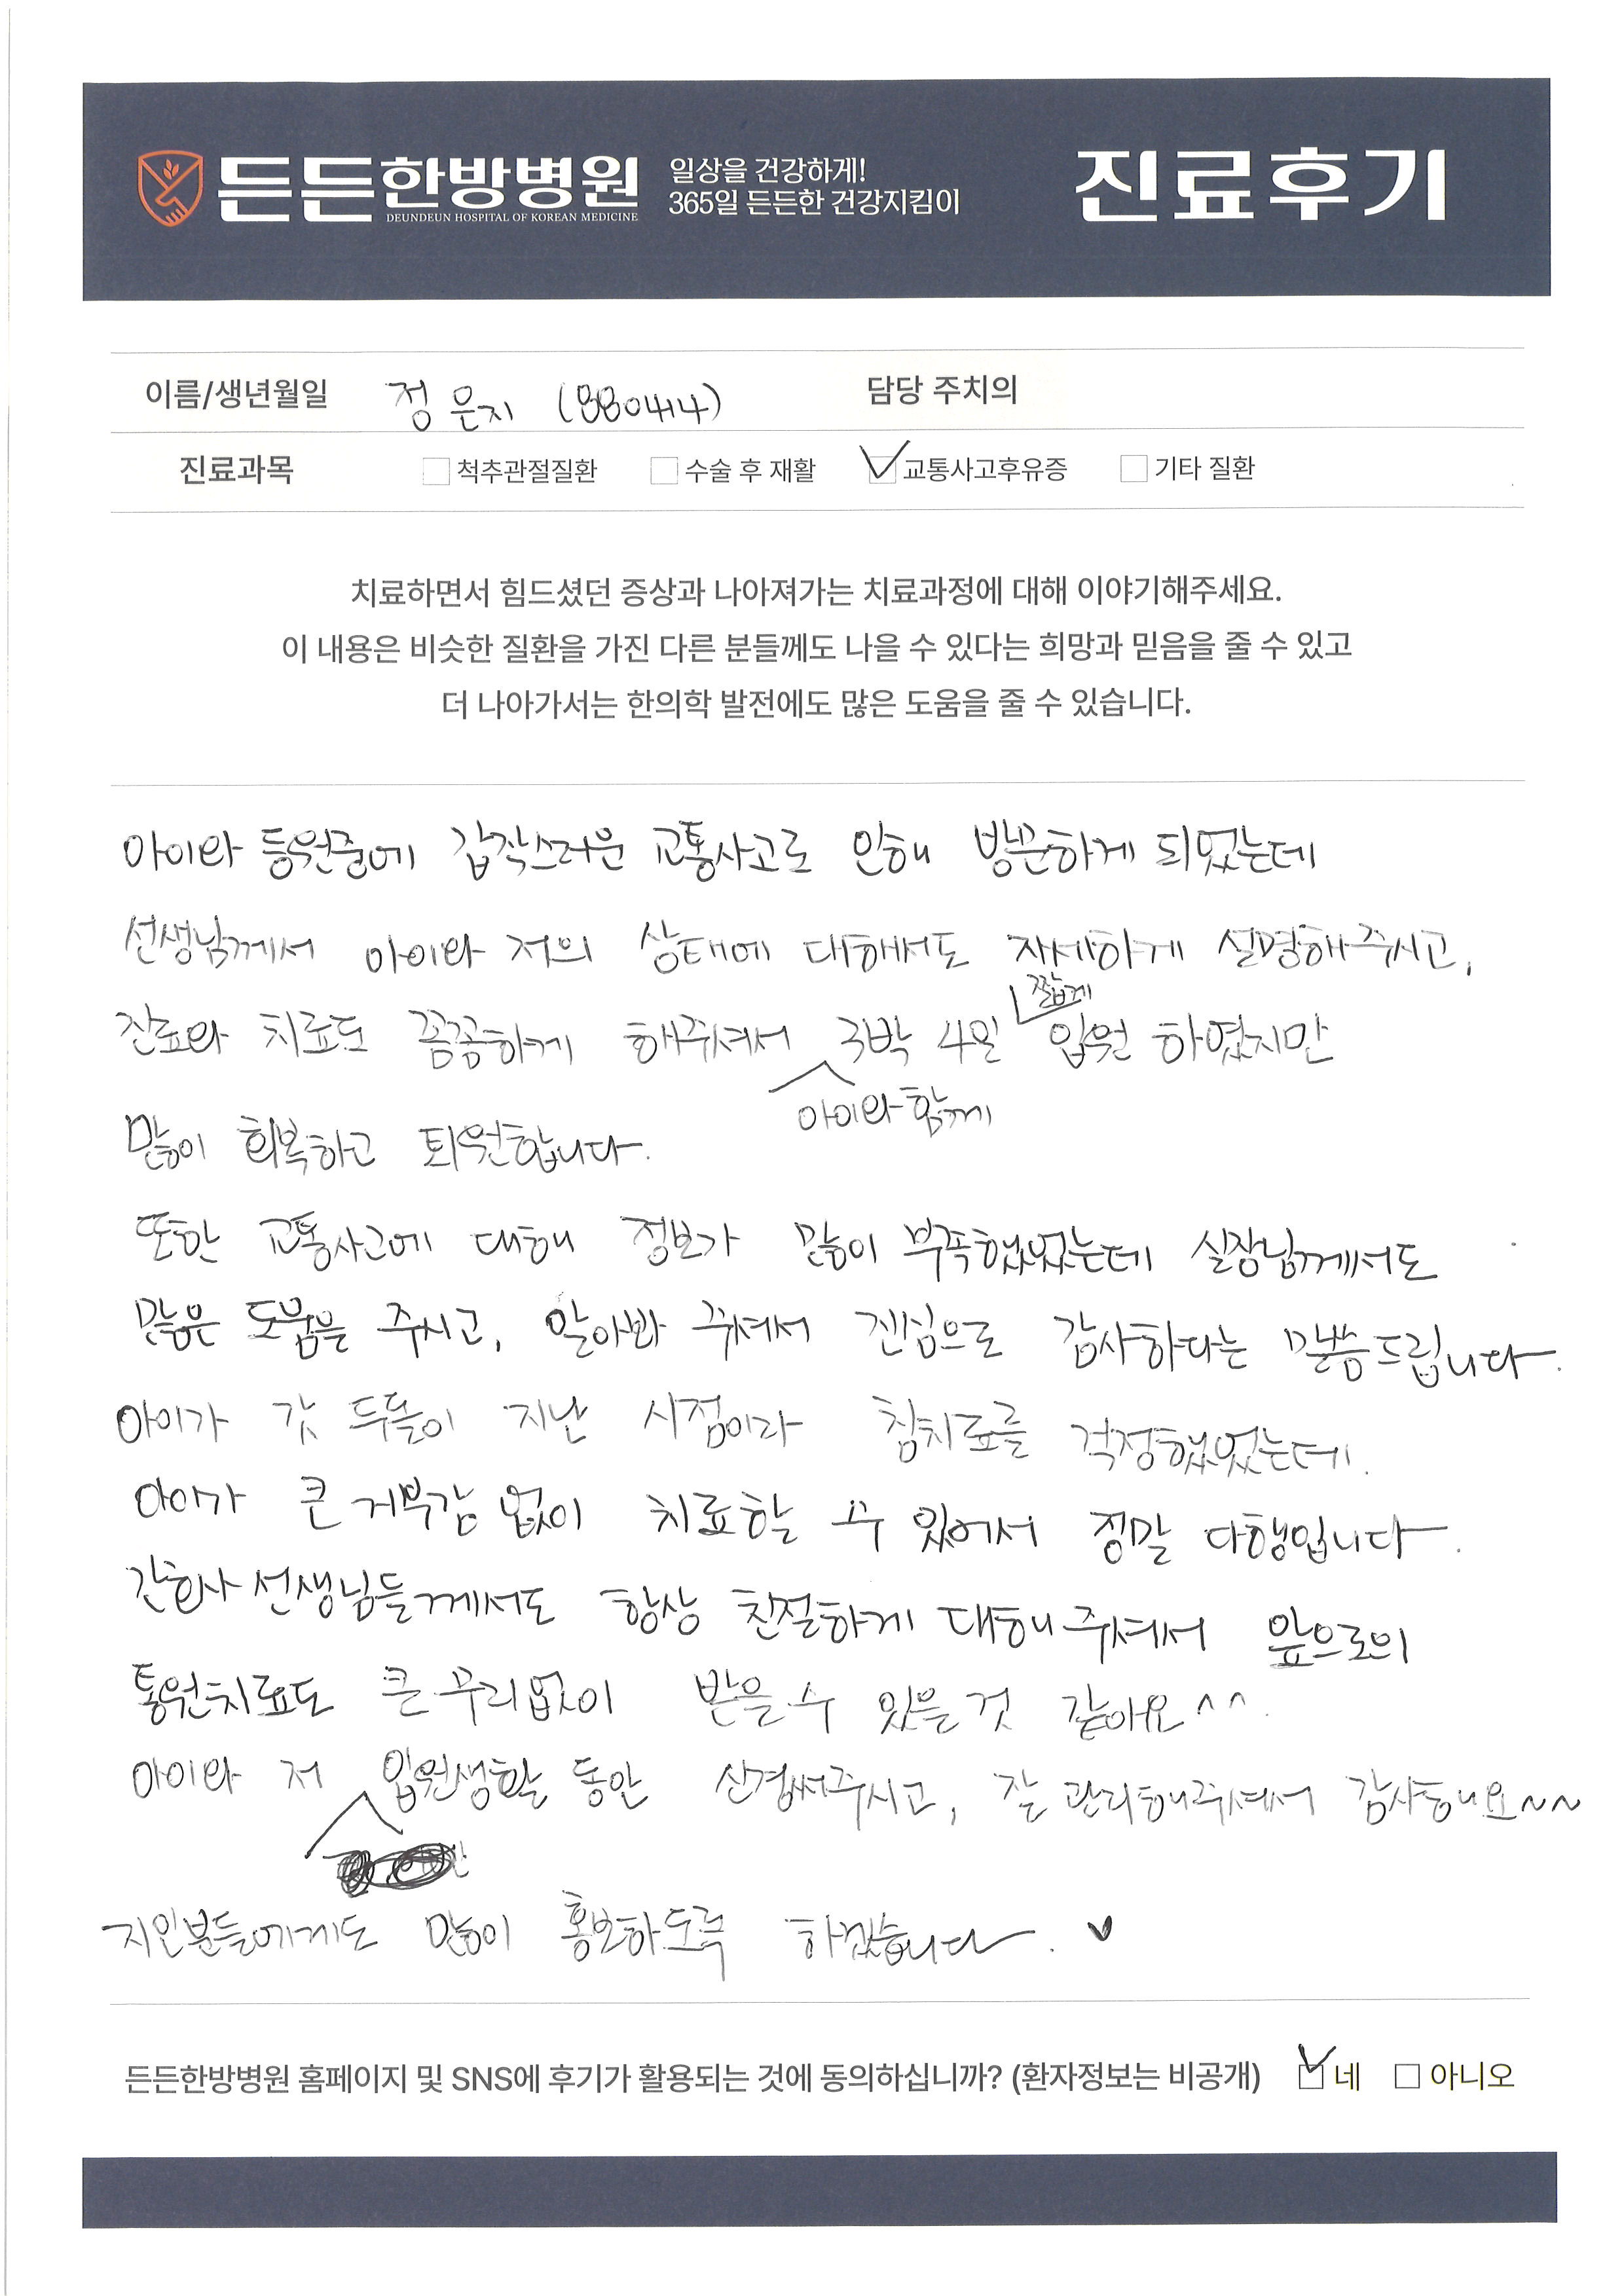 든든한방병원
DEUNDEUN HOSPITAL OF KOREAN MEDICINE
일상을 건강하게!
365일 든든한 건강지킴이
진료후기
이름/생년월일 정은지 (880414) 담당 주치의
진료과목 척추관절질환 수술 후 재활 교통사고후유증 기타 질환
치료하면서 힘드셨던 증상과 나아져가는 치료과정에 대해 이야기해주세요.
이 내용은 비슷한 질환을 가진 다른 분들께도 나을 수 있다는 희망과 믿음을 줄 수 있고
더 나아가서는 한의학 발전에도 많은 도움을 줄 수 있습니다.
아이와 등원중에 갑작스러운 교통사고로 인해 방문하게 되었는데
선생님께서 아이와 저의 상태에 대해서도 자세하게 설명해주시고,
짧게
진료와 치료도 꼼꼼하게 해주셔서 3박 4일 입원 하였지만
아이와 함께
많이 회복하고 퇴원합니다.
또한 교통사고에 대해 정보가 많이 부족했었는데 실장님께서도
많은 도움을 주시고, 알아봐 주셔서 진심으로 감사하다는 말씀드립니다.
아이가 갓 두돌이 지난 시점이라 침치료를 걱정했었는데.
아이가 큰 거부감 없이 치료할 수 있어서 정말 다행입니다.
간호사 선생님들께서도 항상 친절하게 대해주셔서 앞으로의
통원치료도 큰 무리없이 받을 수 있을 것 같아요^^
아이와 저 입원생활 동안 신경써주시고, 잘 관리해주셔서 감사해요~~
지인분들에게도 많이 홍보하도록 하겠습니다. ♥
든든한방병원 홈페이지 및 SNS에 후기가 활용되는 것에 동의하십니까? (환자정보는 비공개) 네 아니오